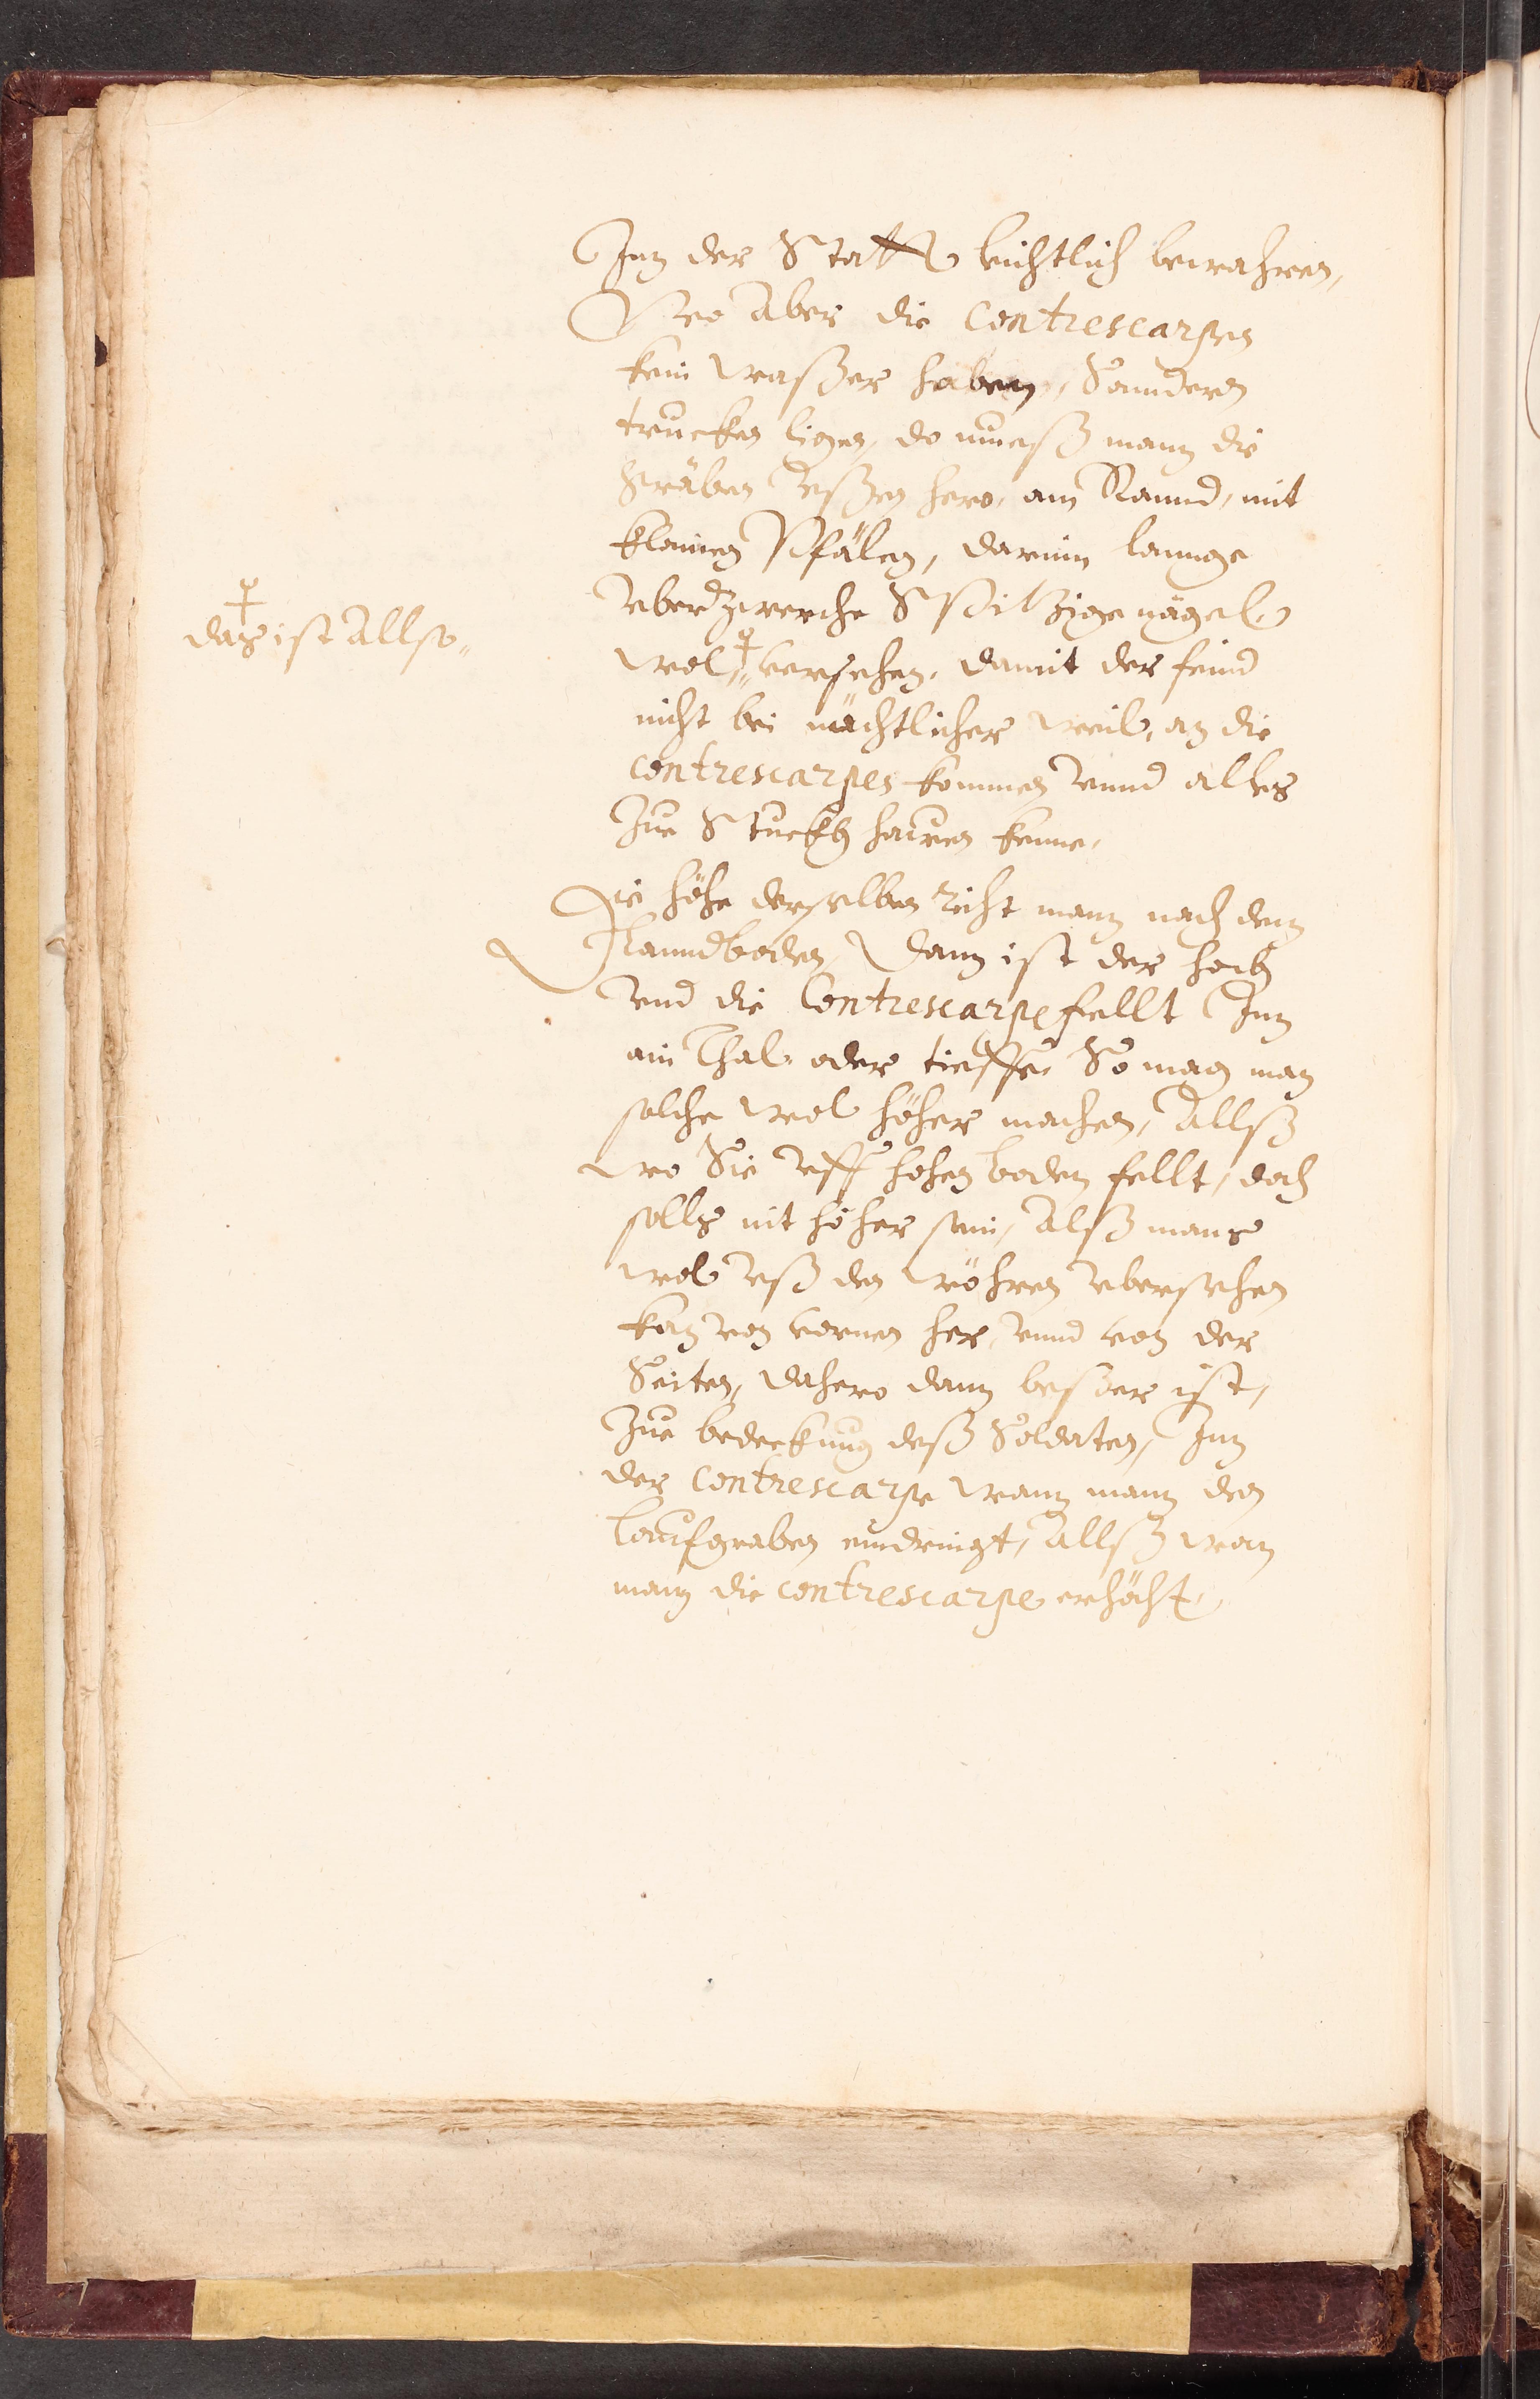 Inn der Statt leichtlich bewahren,
Wo Aber die Contrescarpen
kein waßer haben, Sonnderen
trucken ligen, do mueß mann die
Gräben Aussen hero, am Rannd, mit
klainen Pfälen, darinn lannge
Vberzwerche Spitzige nägel,
das ist Allso
wol versehen, damit der feind
nicht bei nächtlicher weil, an die
contrescarpes kommen vnnd alles
Zue Stuckh hawen kenne,
Die höhe derselben richt mann nach dem
Lanndboden, Dann ist der hoch
vnd die Contrescarpe fellt Inn
ein Thal oder tieffe, So mag man
solche wol höher machen, Allß
wo Sie vff hohen boden fellt, doch
solls nit höher sein, Alß mans
wol vß den wöhren vbersehen
kan von vornen her, vnnd von der
Seiten, dahero dann besser ist,
Zue bedeckung deß Soldaten, Inn
der Contrescarpe wann mann den
Laufgraben nidringt, Allß wan
mann die contrescarpe erhöcht,